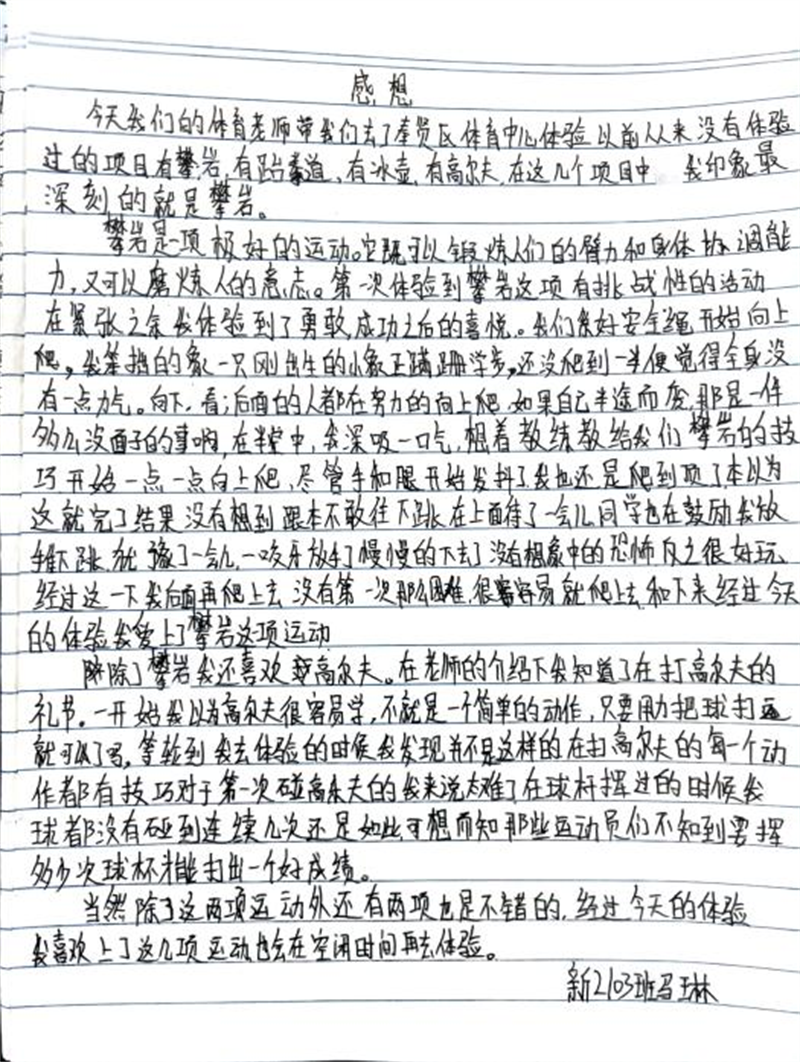 感想
今天我们的体育老师带我们去了奉贤区体育中心体验以前从来没有体验
过的项目有攀岩,有跆拳道,有冰壶,有高尔夫,在这几个项目中 我印象最
深刻的就是攀岩。
攀岩是一项极好的运动。它既可以锻炼人们的臂力和身体协调能
力,又可以磨炼人的意志。第一次体验到攀岩这项有挑战性的活动
在紧张之余我体验到了勇敢,成功之后的喜悦。我们系好安全绳开始向上
爬。我笨拙的象一只刚出生的小象正蹒跚学步。还没爬到一半便觉得全身没
有一点力气。向下看;后面的人都在努力的向上爬,如果自己半途而废,那是一件
多么没面子的事啊,在半空中,我深吸一口气,想着教练教给我们攀岩的技
巧开始一点一点向上爬,尽管手和腿开始发抖了我也还是爬到顶了本以为
这就完了结果没有想到跟本不敢往下跳在上面待了一会儿同学也在鼓励我放
手往下跳,犹豫了一会儿,一咬牙放手了慢慢的下去了没有想象中的恐怖反之很好玩
经过这一下我后面再爬上去 没有第一次那么困难,很容易就爬上去和下来经过今天
的体验我爱上了攀岩这项运动
除了攀岩我还喜欢高尔夫。在老师的介绍下我知道了在打高尔夫的
礼节。一开始我以为高尔夫很容易学,不就是一个简单的动作,只要用力把球打远
就可以了吗,等轮到我去体验的时候我发现并不是这样的在打高尔夫的每一个动
作都有技巧对于第一次碰高尔夫的我来说太难了在球杆挥过的时候我
球都没有碰到连续几次还是如此可想而知那些运动员们不知到要挥
多少次球杯才能打出一个好成绩。
当然除了这两项运动外还有两项也是不错的,经过今天的体验
我喜欢上了这几项运动也会在空闲时间再去体验。
新2103班马琳